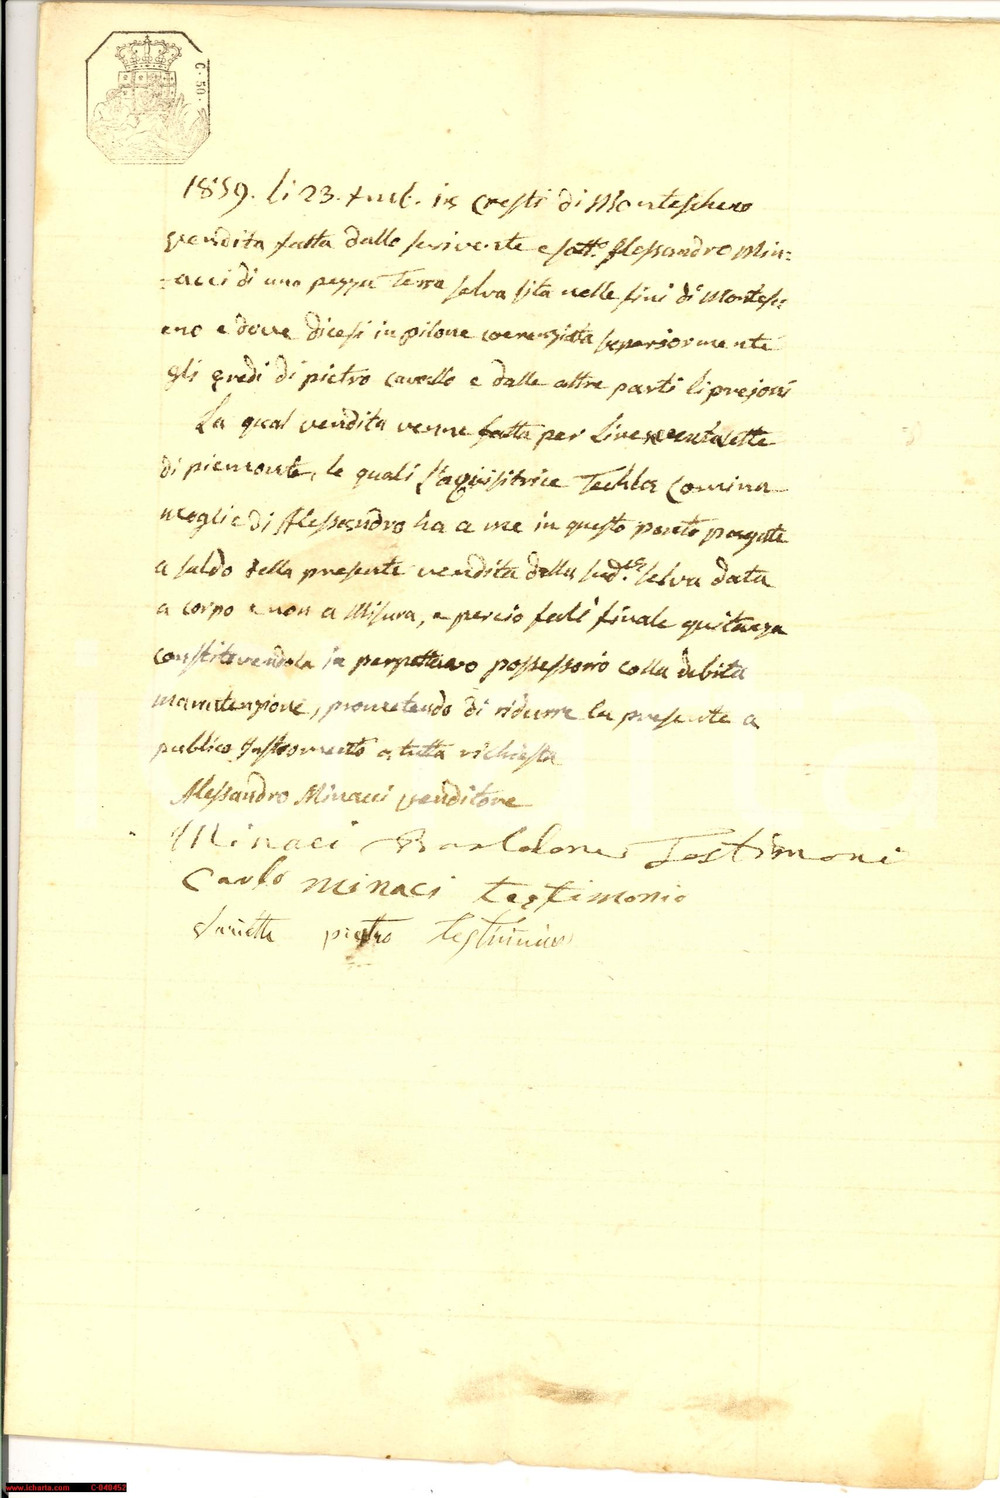 C. 50.
1859. li 23. in Cresti di Montescheno
vendita fatta dallo scrivente e sott.o Alessandro Min=
=acci di una pezza Terra selva sita nelle fini di Montesc=
eno e dove dicesi in pilone coerenziata superiormente
gli eredi di pietro cavallo e dalle altre parti li
La qual vendita venne fatta per Lire
di piemonte, le quali l'aquisitrice Teckla Comina
moglie di Alessandro ha a me in questo ponto pagate
a saldo della presente vendita della sud.ta selva data
a corpo e non a Misura, e percio feceli finale quitanza
constitovendola in perpettuvo possessorio colla debita
manutenzione, prometendo di ridurre la presente a
publico Instromento a tutta richiesta
Alessandro Minacci venditore
Minaci Bartolomeo Testimoni
Carlo minaci testimonio
pietro testimonio
www.icharta.com C-040452